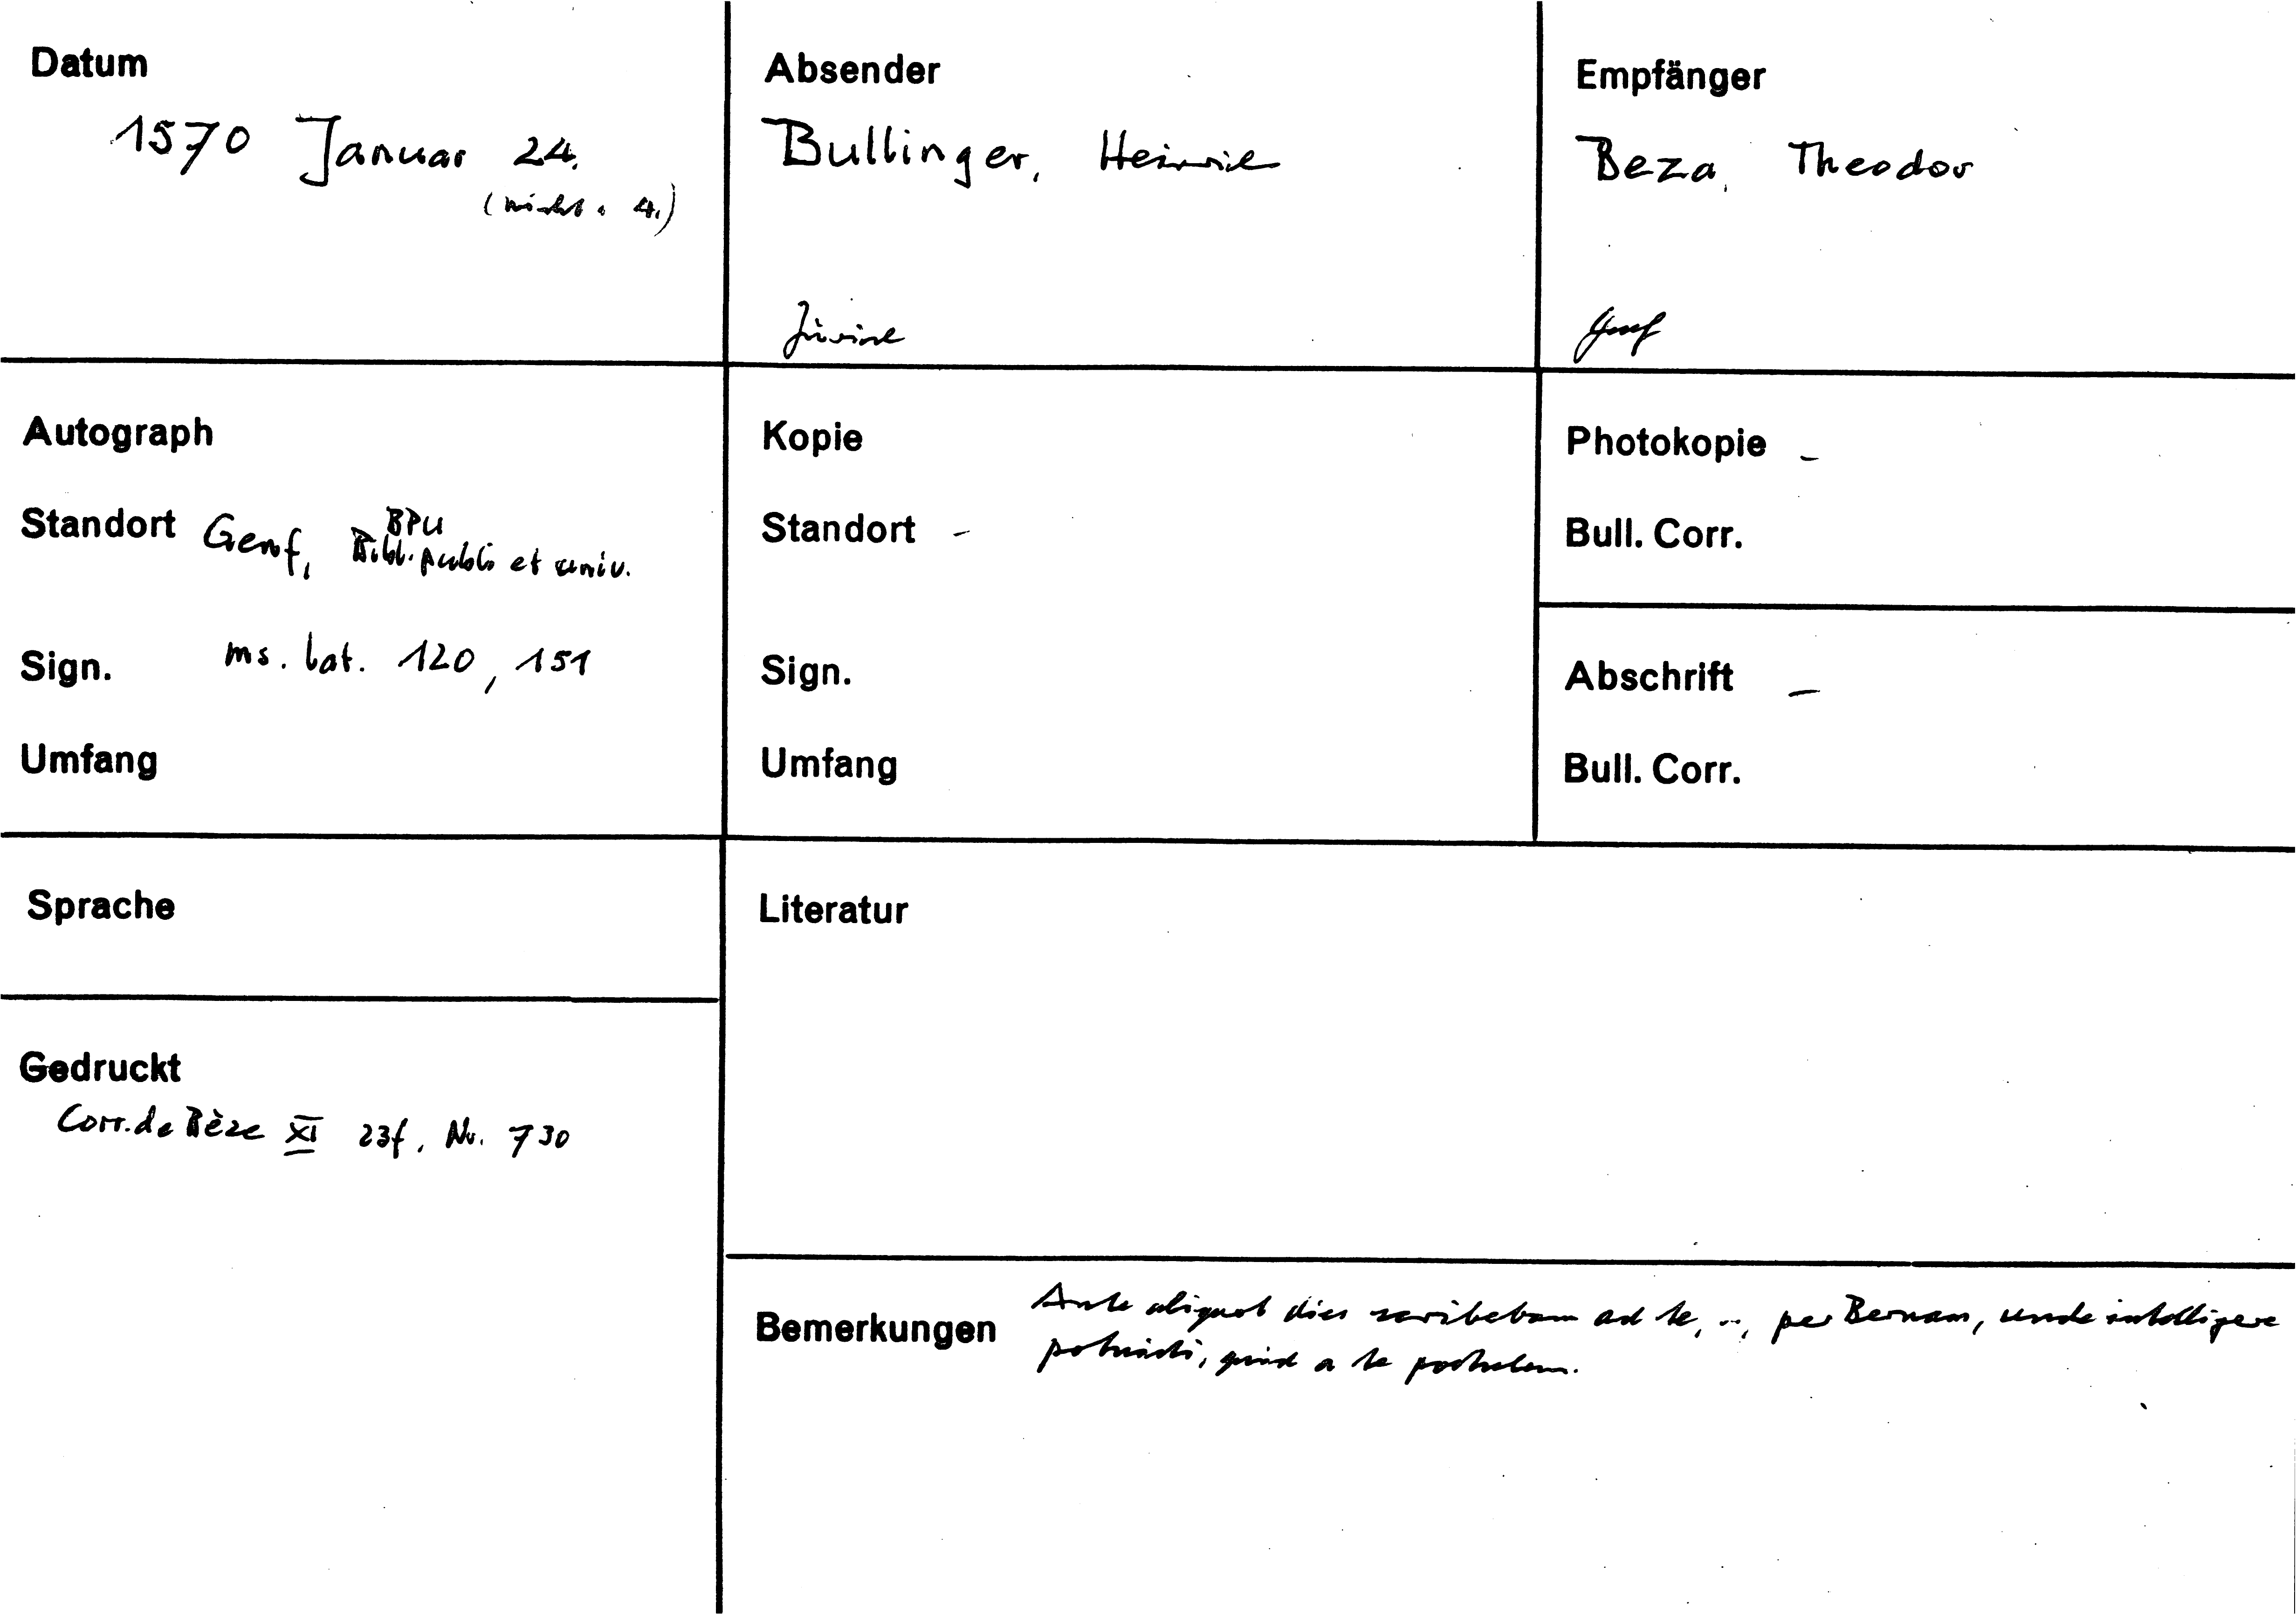 Datum
1570 Januar 24.
(nicht: 4.)
Absender
Bullinger, Heinrich
Zürich
Empfänger
Beza, Theodor
Genf
Autograph
Standort Genf, BPU
Bibl. publ. et univ.
Sign. ms. lat. 120, 151
Umfang
Kopie
Standort -
Sign.
Umfang
Photokopie -
Bull. Corr.
Abschrift -
Bull. Corr.
Sprache
Gedruckt
Corr. de Bèze XI 23f, Nr. 730
Literatur
Bemerkungen Ante aliquot dies scribebam ad te, .., per Bernam, unde intelligere
potuisti, quid a te postulem.